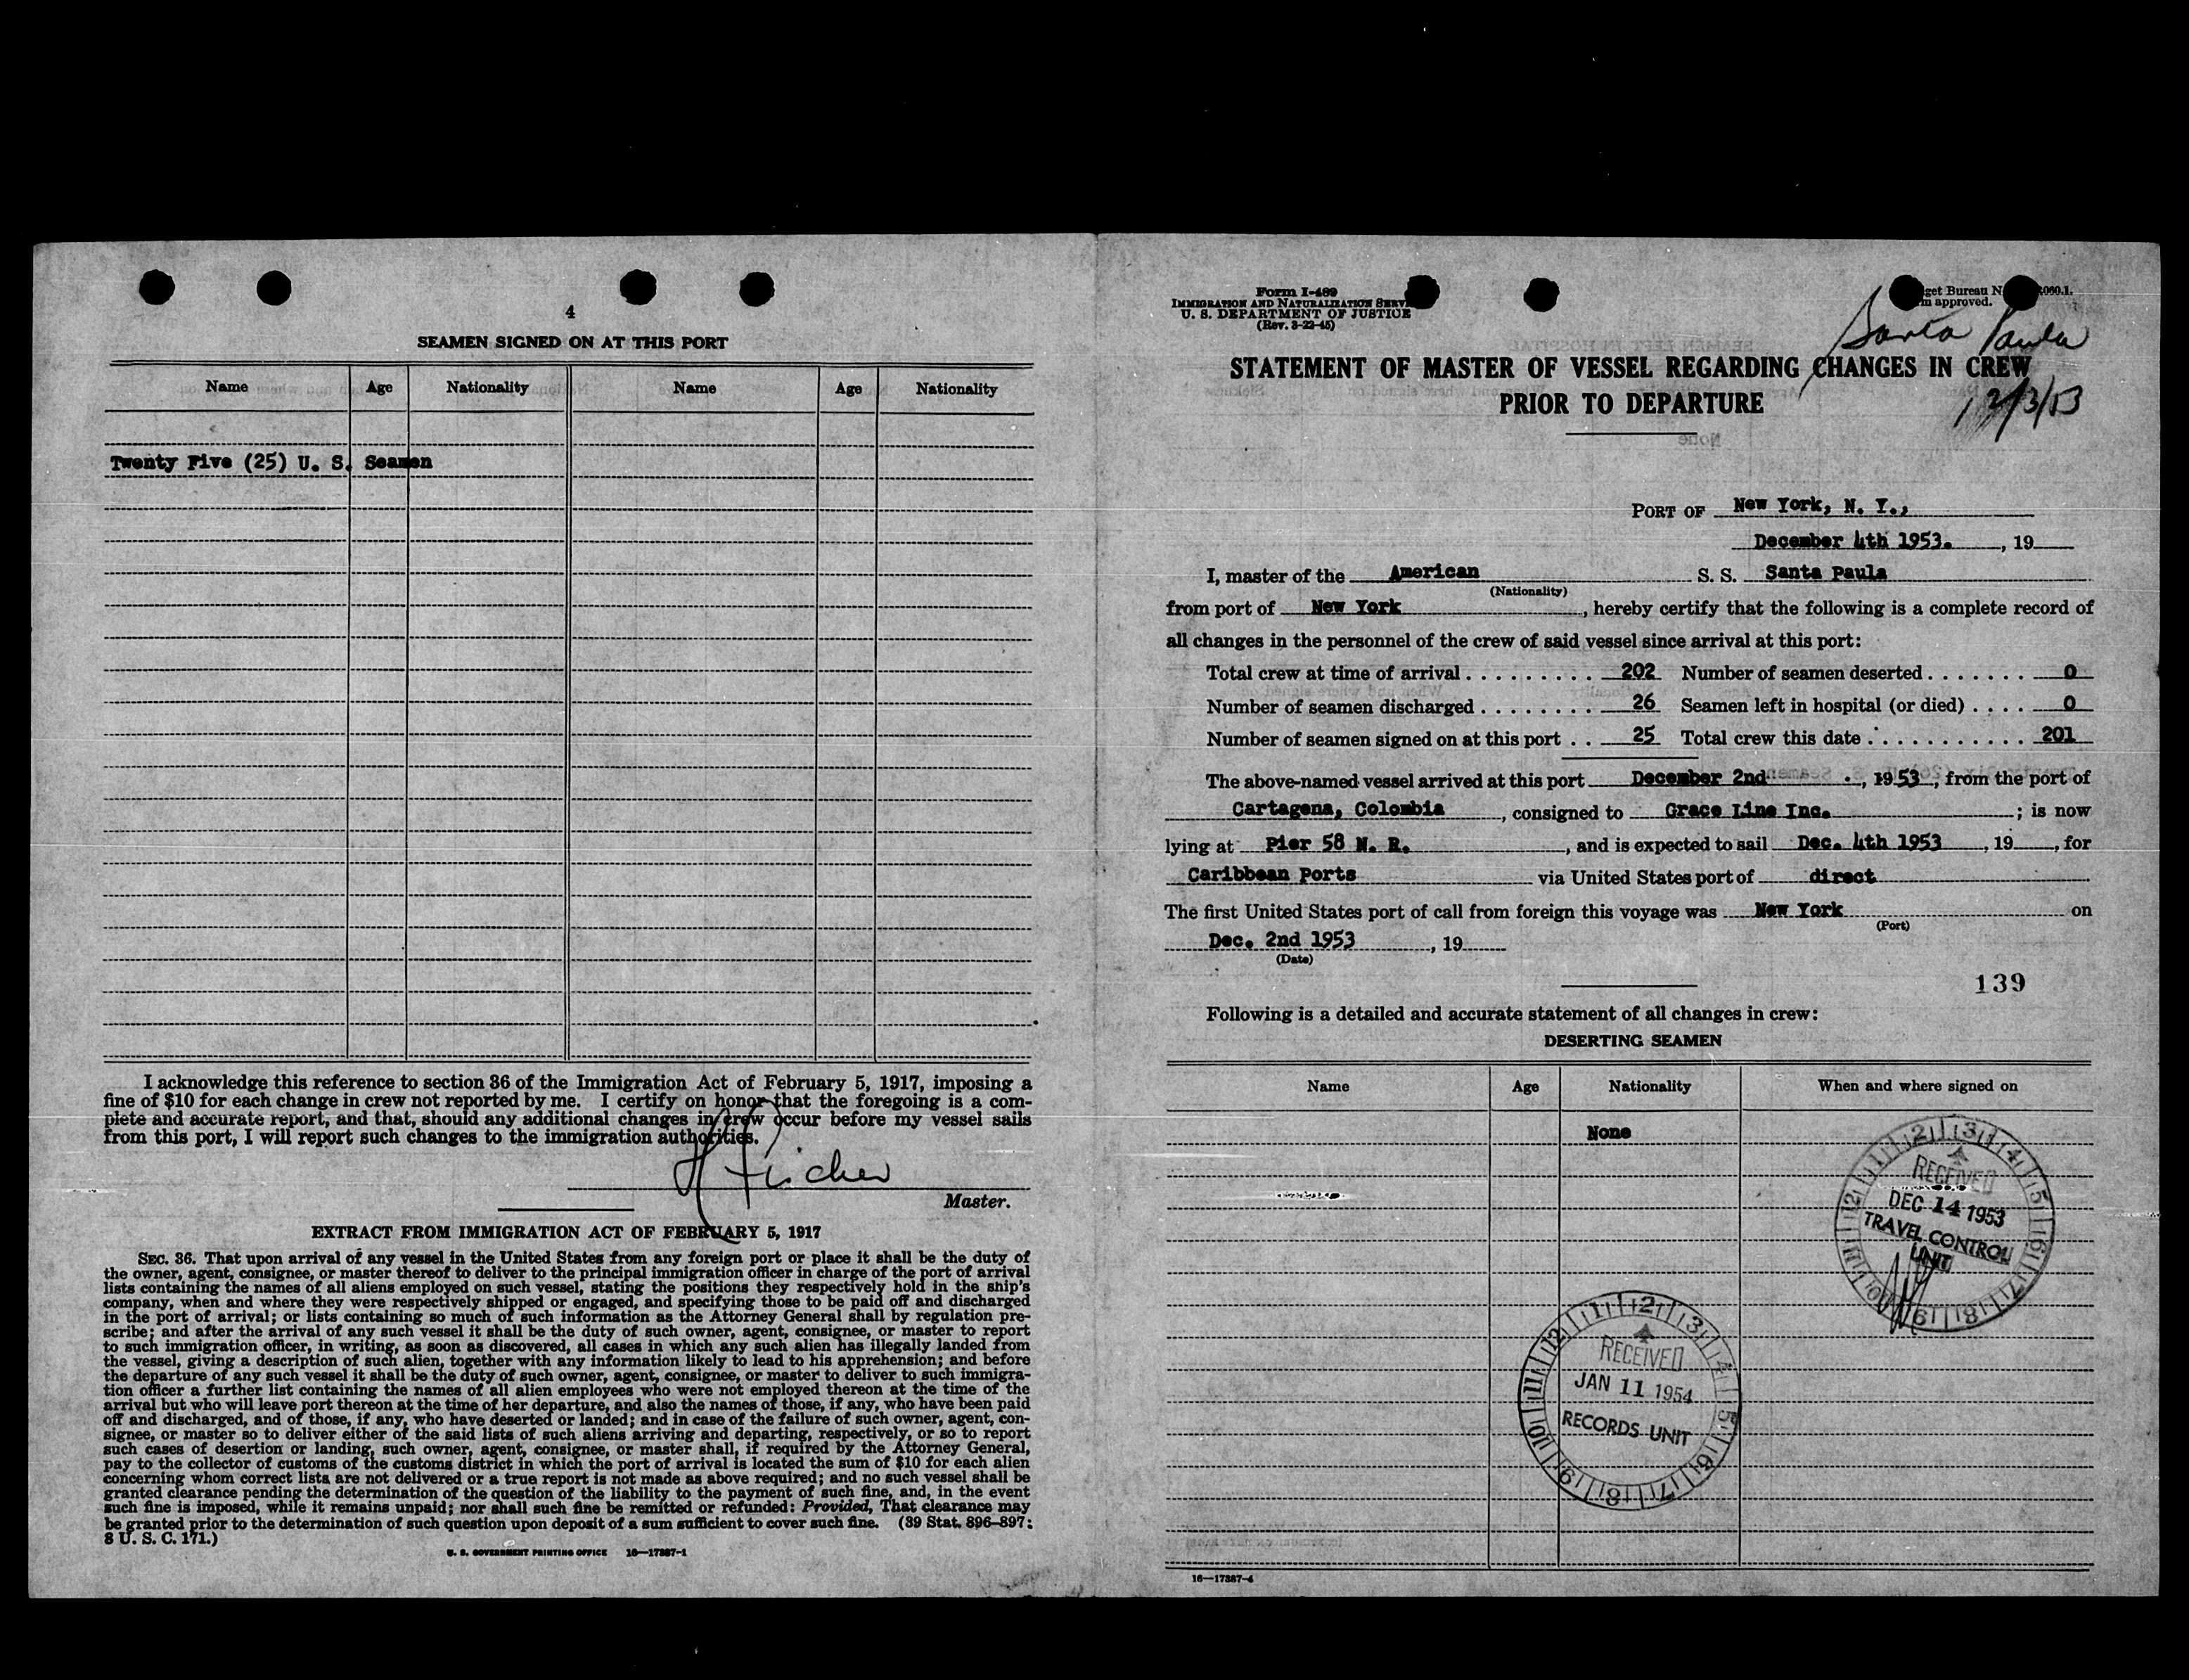 4
SEAMEN SIGNED ON AT THIS PORT
Name Age Nationality Name Age Nationality
Twenty Five (25) U. S. Seamen
I acknowledge this reference to section 36 of the Immigration Act of February 5, 1917, imposing a
fine of $10 for each change in crew not reported by me. I certify on honor that the foregoing is a com-
plete and accurate report, and that, should any additional changes in crew occur before my vessel sails
from this port, I will report such changes to the immigration authorities.
Master.
EXTRACT FROM IMMIGRATION ACT OF FEBRUARY 5, 1917
SEC. 36. That upon arrival of any vessel in the United States from any foreign port or place it shall be the duty of
the owner, agent, consignee, or master thereof to deliver to the principal immigration officer in charge of the port of arrival
lists containing the names of all aliens employed on such vessel, stating the positions they respectively hold in the ship's
company, when and where they were respectively shipped or engaged, and specifying those to be paid off and discharged
in the port of arrival; or lists containing so much of such information as the Attorney General shall by regulation pre-
scribe; and after the arrival of any such vessel it shall be the duty of such owner, agent, consignee, or master to report
to such immigration officer, in writing, as soon as discovered, all cases in which any such alien has illegally landed from
the vessel, giving a description of such alien, together with any information likely to lead to his apprehension; and before
the departure of any such vessel it shall be the duty of such owner, agent, consignee, or master to deliver to such immigra-
tion officer a further list containing the names of all alien employees who were not employed thereon at the time of the
arrival but who will leave port thereon at the time of her departure, and also the names of those, if any, who have been paid
off and discharged, and of those, if any, who have deserted or landed; and in case of the failure of such owner, agent, con-
signee, or master so to deliver either of the said lists of such aliens arriving and departing, respectively, or so to report
such cases of desertion or landing, such owner, agent, consignee, or master shall, if required by the Attorney General,
pay to the collector of customs of the customs district in which the port of arrival is located the sum of $10 for each alien
concerning whom correct lists are not delivered or a true report is not made as above required; and no such vessel shall be
granted clearance pending the determination of the question of the liability to the payment of such fine, and, in the event
such fine is imposed, while it remains unpaid; nor shall such fine be remitted or refunded: Provided, That clearance may
be granted prior to the determination of such question upon deposit of a sum sufficient to cover such fine. (39 Stat. 896-897;
8 U. S. C. 171.)
U. S. GOVERNMENT PRINTING OFFICE 16—17387-1
Form I-489
IMMIGRATION AND NATURALIZATION SERV
U. S. DEPARTMENT OF JUSTICE
(Rev. 3-22-45)
get Bureau N
approved.
Santa Paula
12/3/53
STATEMENT OF MASTER OF VESSEL REGARDING CHANGES IN CREW
PRIOR TO DEPARTURE
PORT OF New York, N. Y.,
December 4th 1953. , 19
I, master of the American S. S. Santa Paula
(Nationality)
from port of New York , hereby certify that the following is a complete record of
all changes in the personnel of the crew of said vessel since arrival at this port:
Total crew at time of arrival . . . . . . . . . 202 Number of seamen deserted . . . . . . . 0
Number of seamen discharged . . . . . . . . 26 Seamen left in hospital (or died) . . . . 0
Number of seamen signed on at this port . . 25 Total crew this date . . . . . . . . . . . 201
The above-named vessel arrived at this port December 2nd , 1953, from the port of
Cartagena, Colombia , consigned to Grace Line Inc. ; is now
lying at Pier 58 N. R. , and is expected to sail Dec. 4th 1953 , 19 , for
Caribbean Ports via United States port of direct
The first United States port of call from foreign this voyage was New York on
(Port)
Dec. 2nd 1953 , 19
(Date)
139
Following is a detailed and accurate statement of all changes in crew:
DESERTING SEAMEN
Name Age Nationality When and where signed on
None
RECEIVED
DEC 14 1953
TRAVEL CONTROL
UNIT
RECEIVED
JAN 11 1954
RECORDS UNIT
16—17387-4